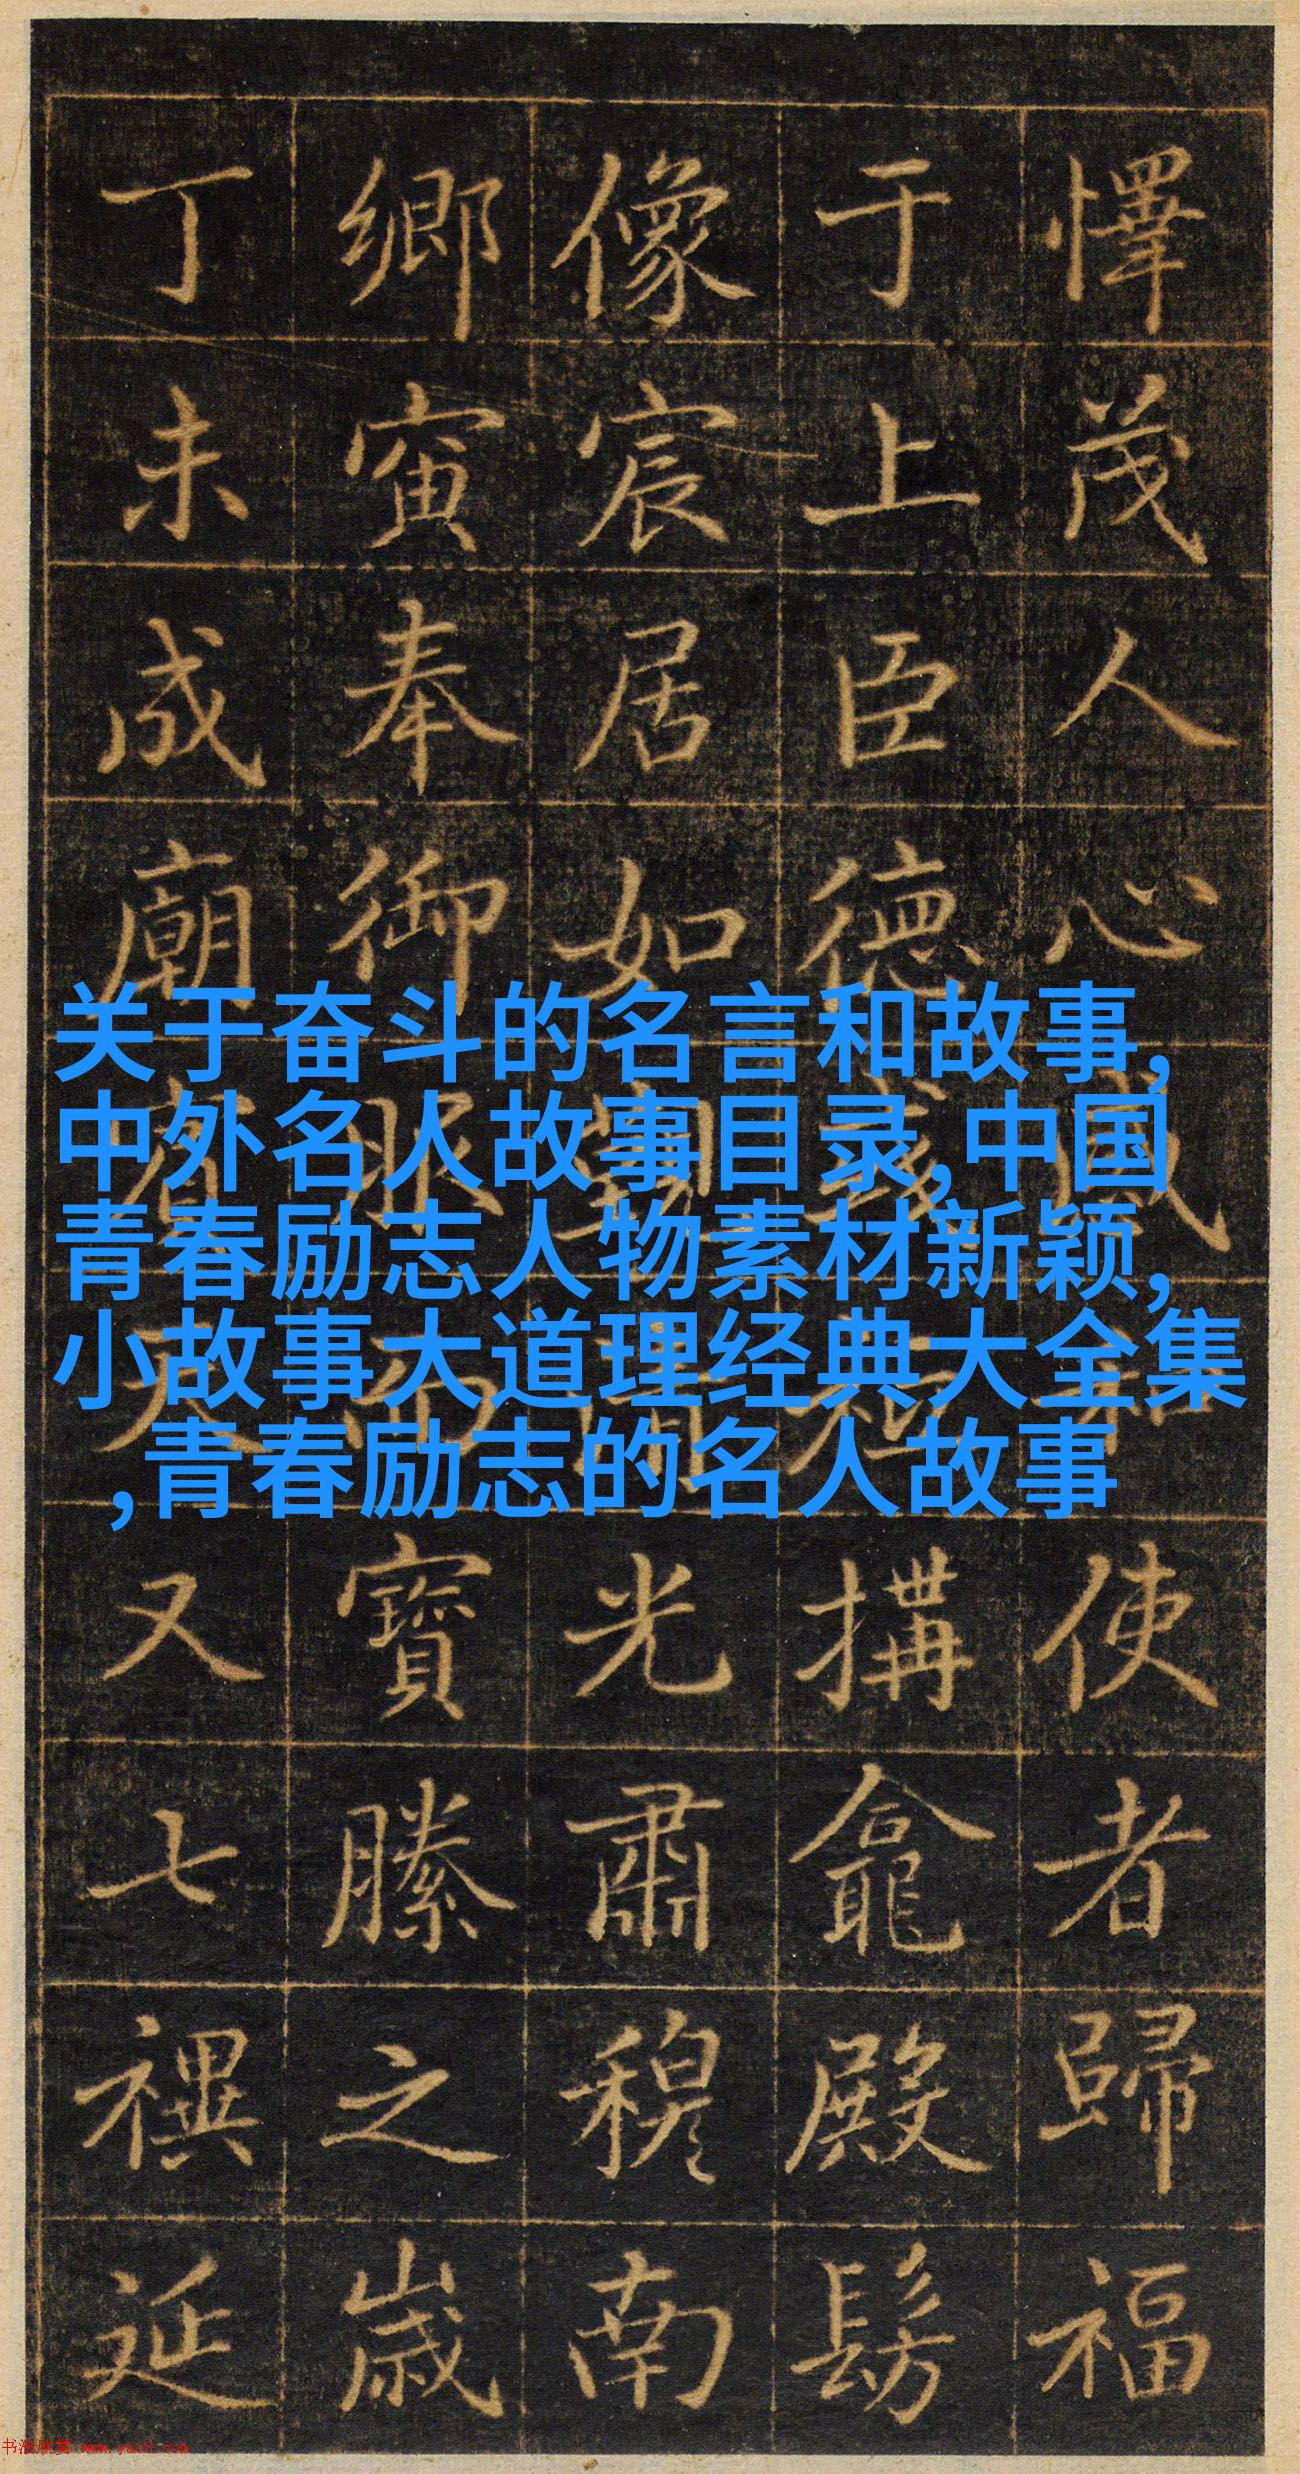 懌茂人心和使者歸福
于上臣德搆龕殿髣
像宸居如光肅穆南
鄉寅奉御服寶縢之歲
丁未成廟賓天又七禩延
关于奋斗的名言和故事,
中外名人故事目录,中国
青春励志人物素材新颖,
小故事大道理经典大全集
,青春励志的名人故事
书法欣赏 www.yac8.com